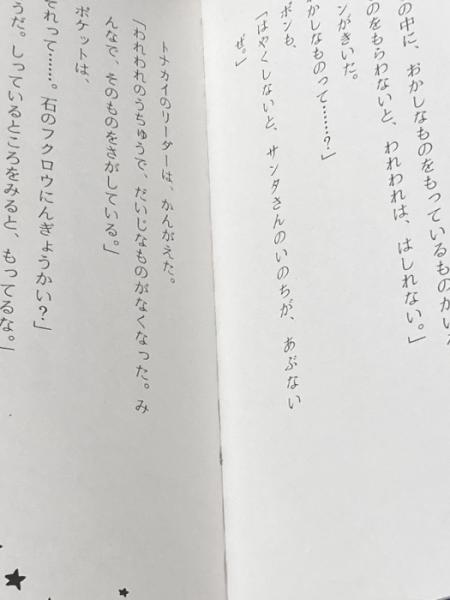 の中に、おかしなものをもっているものがいる
のをもらわないと、われわれは、はしれない。」
ンがきいた。
かしなものって……？」
ポンも、
「はやくしないと、サンタさんのいのちが、あぶない
ぜ。」
トナカイのリーダーは、かんがえた。
「われわれのうちゅうで、だいじなものがなくなった。み
んなで、そのものをさがしている。」
ポケットは、
それって……。石のフクロウにんぎょうかい？」
うだ。しっているところをみると、もってるな。」